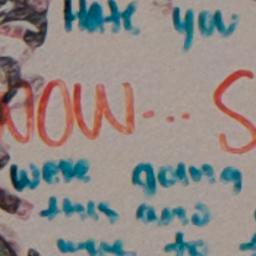 Hate you
NOW... S
were going
this and
to